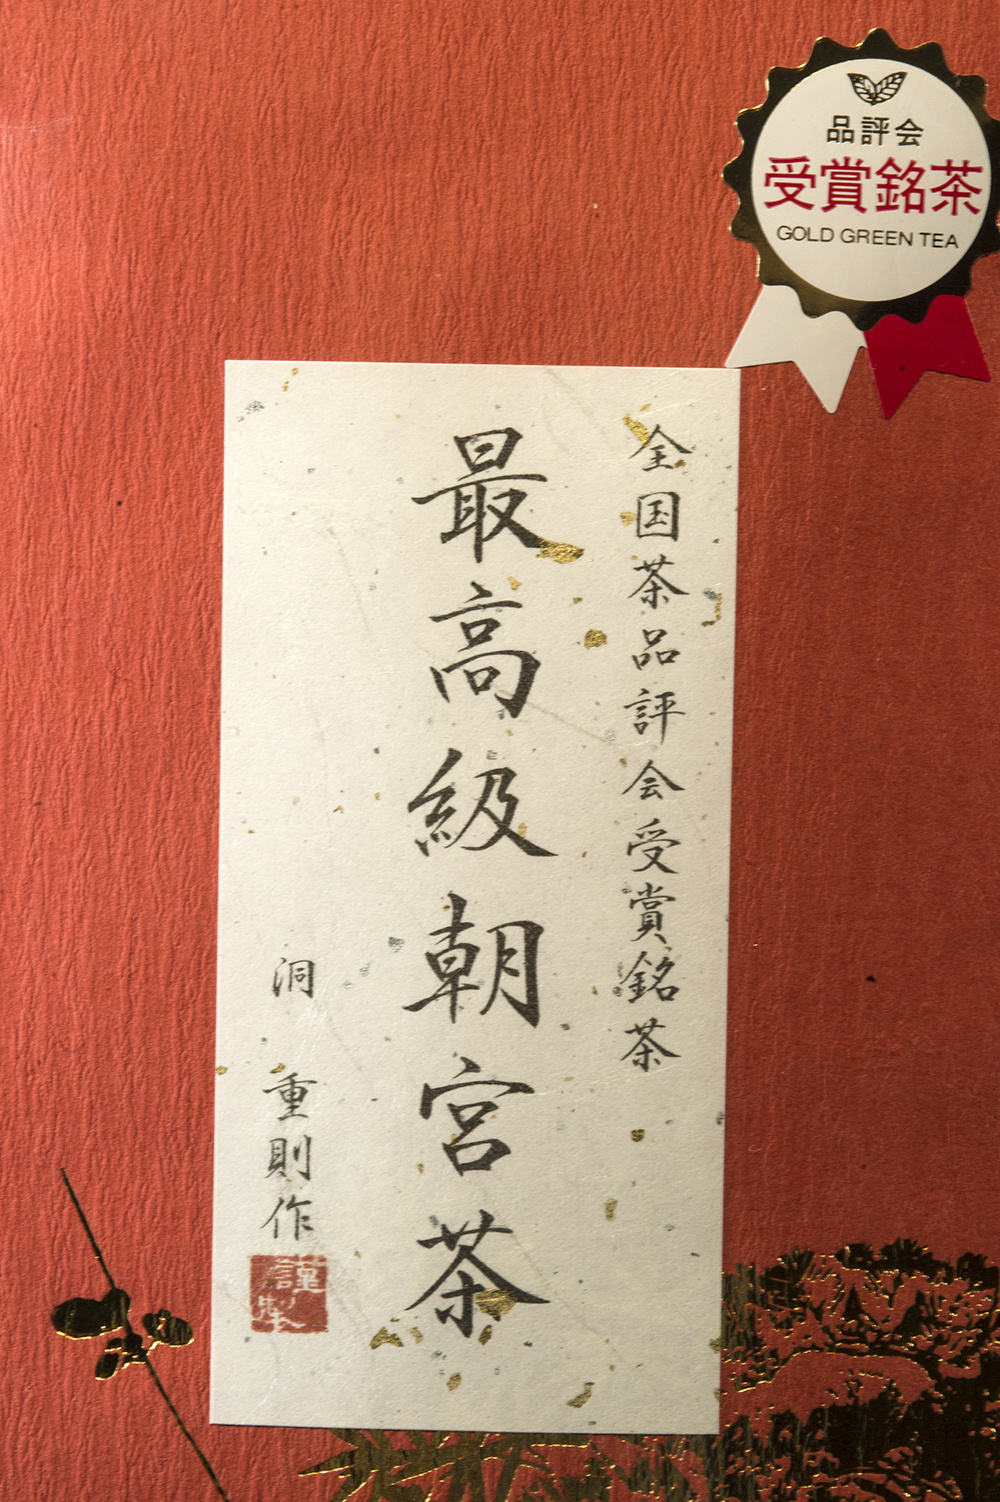 品評会
受賞銘茶
GOLD GREEN TEA
全国茶品評会受賞銘茶
最高級朝宮茶
洞 重則作
謹製